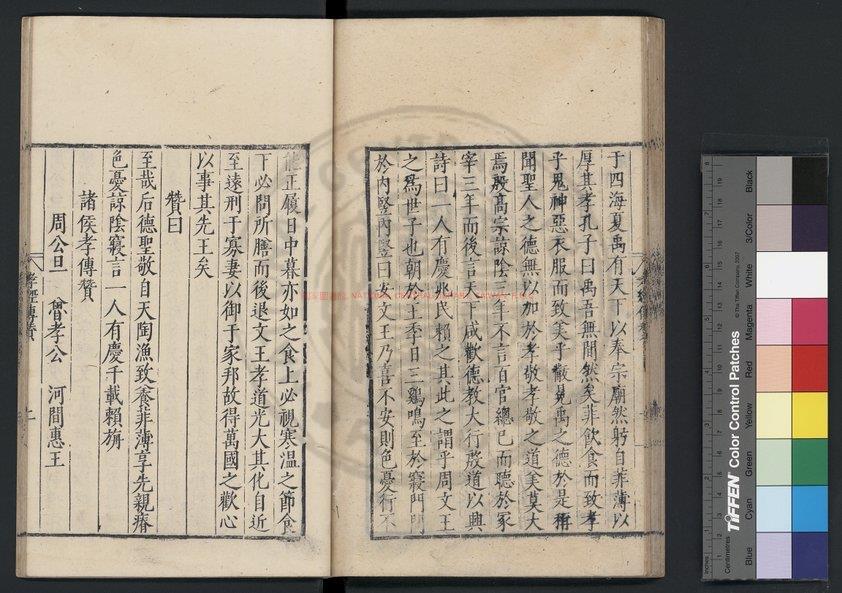 于四海夏禹有天下以奉宗廟然躬自菲薄以
厚其孝孔子曰禹吾無間然矣菲飲食而致孝
乎鬼神惡衣服而致美乎黻冕禹之德於是稱
聞聖人之德無以加於孝敬孝敬之道美莫大
焉殷高宗諒陰三年不言百官總己而聽於冢
宰三年而後言天下咸歡德教大行殷道以興
詩曰一人有慶兆民賴之其此之謂乎周文王
之為世子也朝於王季日三雞鳴至於寢門
於內豎內豎曰安文王乃喜不安則色憂行不
能正履日中暮亦如之食上必視寒溫之節食
下必問所膳而後退文王孝道光大其化自近
至遠刑于寡妻以御于家邦故得萬國之歡心
以事其先王矣
贊曰
至哉后德聖敬自天陶漁致養菲薄享先親瘠
色憂諒陰寢言一人有慶千載賴旃
諸侯孝傳贊
周公旦 魯孝公 河間惠王
孝經傳贊
TIFFEN Color Control Patches
© The Tiffen Company, 2007
Centimetres
Inches
Blue
Cyan
Green
Yellow
Red
Magenta
White
3/Color
Black